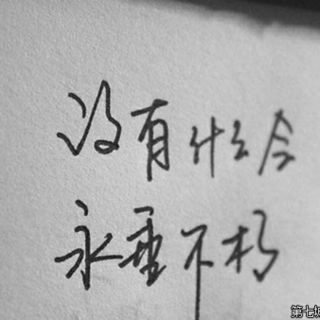 没有什么会
永垂不朽
第七